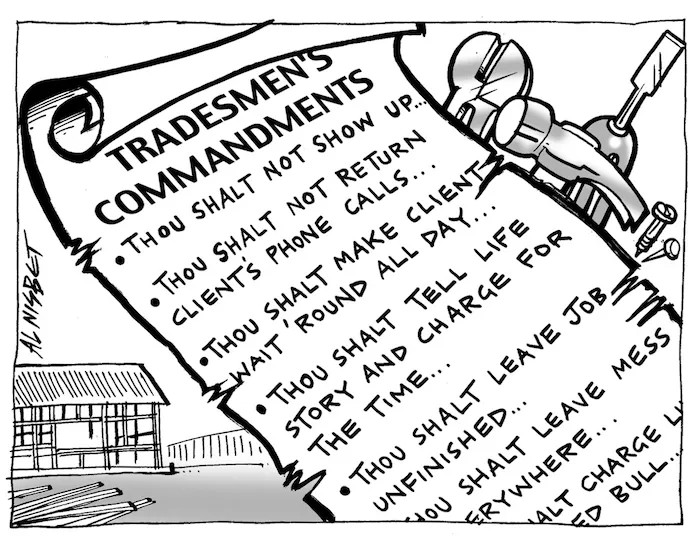 TRADESMEN'S
COMMANDMENTS
• THOU SHALT NOT SHOW UP...
• THOU SHALT NOT RETURN
CLIENT'S PHONE CALLS...
• THOU SHALT MAKE CLIENT
WAIT 'ROUND ALL DAY...
• THOU SHALT TELL LIFE
STORY AND CHARGE FOR
THE TIME...
• THOU SHALT LEAVE JOB
UNFINISHED...
SHALT LEAVE MESS
ERYWHERE...
ALT CHARGE
ED BULL...
AL NISBET